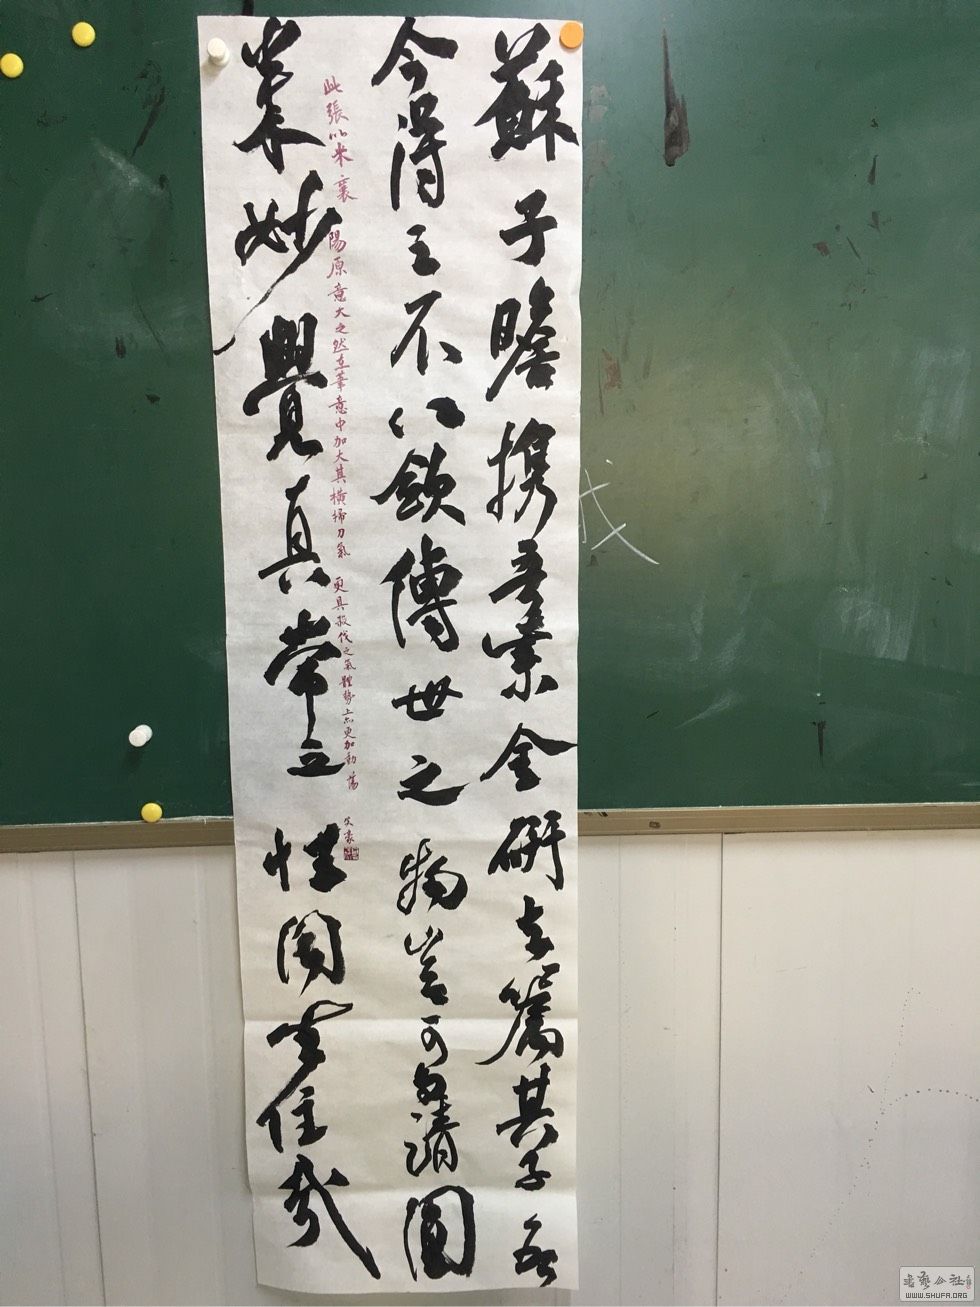 蘇子瞻携吾紫金研去囑其子
今得之不以斂傳世之物豈可與清圓
来妙覺真常之性同去住哉
此張以米襄陽原意大之然在筆意中加大其橫掃刀氣 更具殺伐之氣體勢上亦更加動蕩
文豪
書藝公社
WWW.SHUFA.ORG